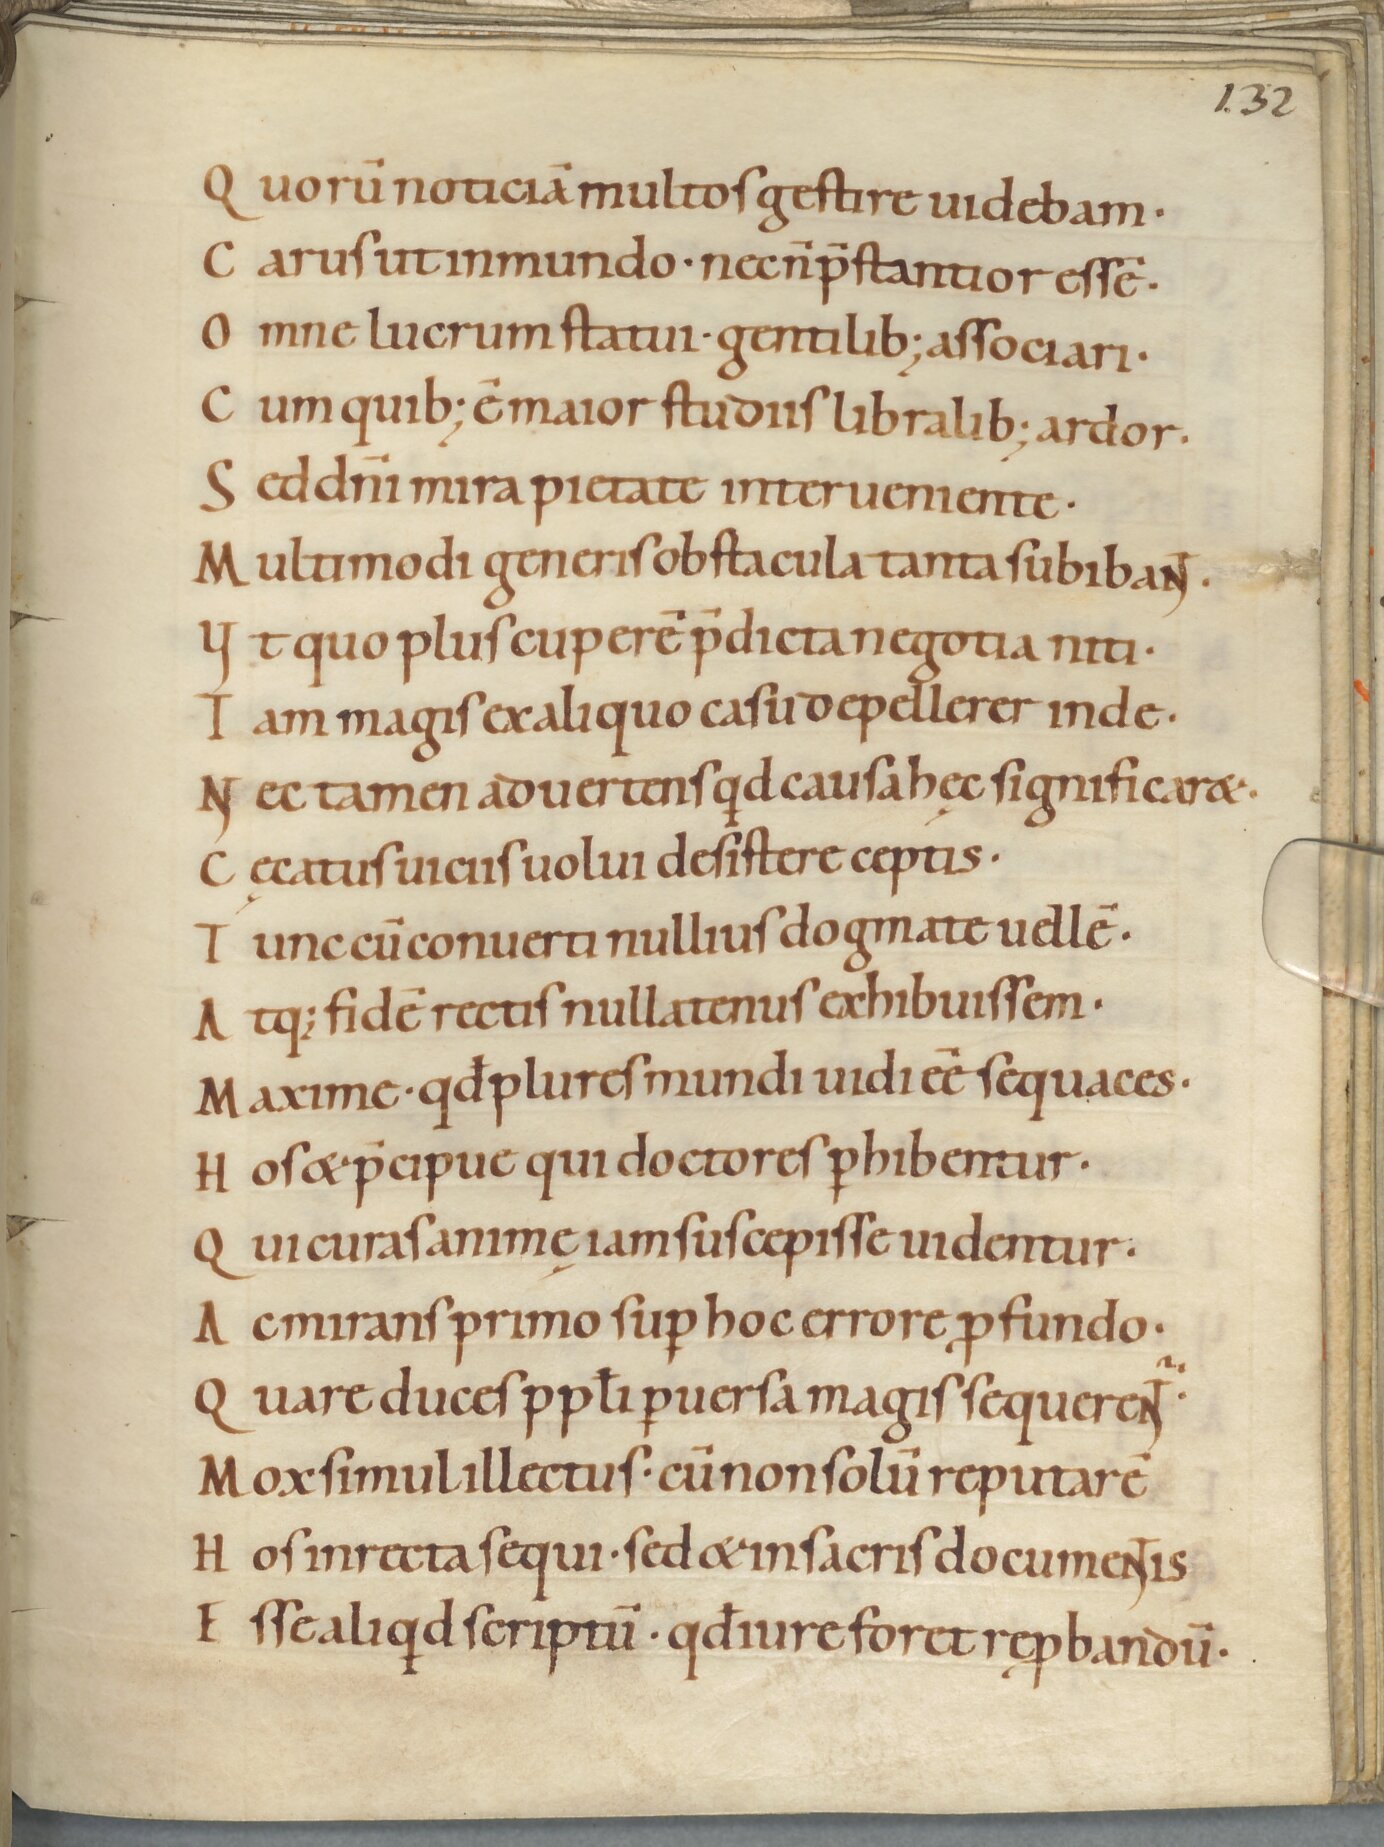 132
Quorū noticiā multos gestire uidebam·
Carus ut in mundo· necn̄ p̄stantior essē·
Omne lucrum statui· gentilib; associari·
Cum quib; ē maior studiis libralib; ardor·
Sed dn̄i mira pietate interueniente·
Multimodi generis obstacula tanta subibant·
Vt quo plus cuperē p̄dicta negotia niti·
Tam magis ex aliquo casu depellerer inde·
Nec tamen aduertens qd causa hęc significaret·
Cęcatus uiciis uolui desistere ceptis·
Tunc cū conuerti nullius dogmate uellē·
Atq; fidē rectis nullatenus exhibuissem·
Maxime· qđ plures mundi uidi eē sequaces·
Hos & p̄cipue qui doctores ꝑhibentur·
Qui curas animę iam suscepisse uidentur·
Ac mirans primo suꝑ hoc errore ꝓfundo·
Quare duces ppłi ꝑuersa magis sequerent᷒·
Mox simul illectus· cū non solū reputarē
Hos inrecta sequi· sed & in sacris documentis
Esse aliqd scriptū· qđ iure foret ręꝓbandū·